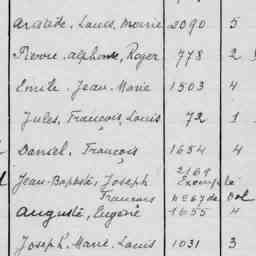 Aristide, Louis, Marie 2090 5
Pierre, Alphonse, Roger 778 2
Emile, Jean-Marie 1503 4
Jules, François, Louis 72 1
Daniel, François 1654 4
Jean-Baptiste, Joseph 2161 Exempté
François
Auguste, Eugène 1655 4
Joseph, Marie, Louis 1031 3